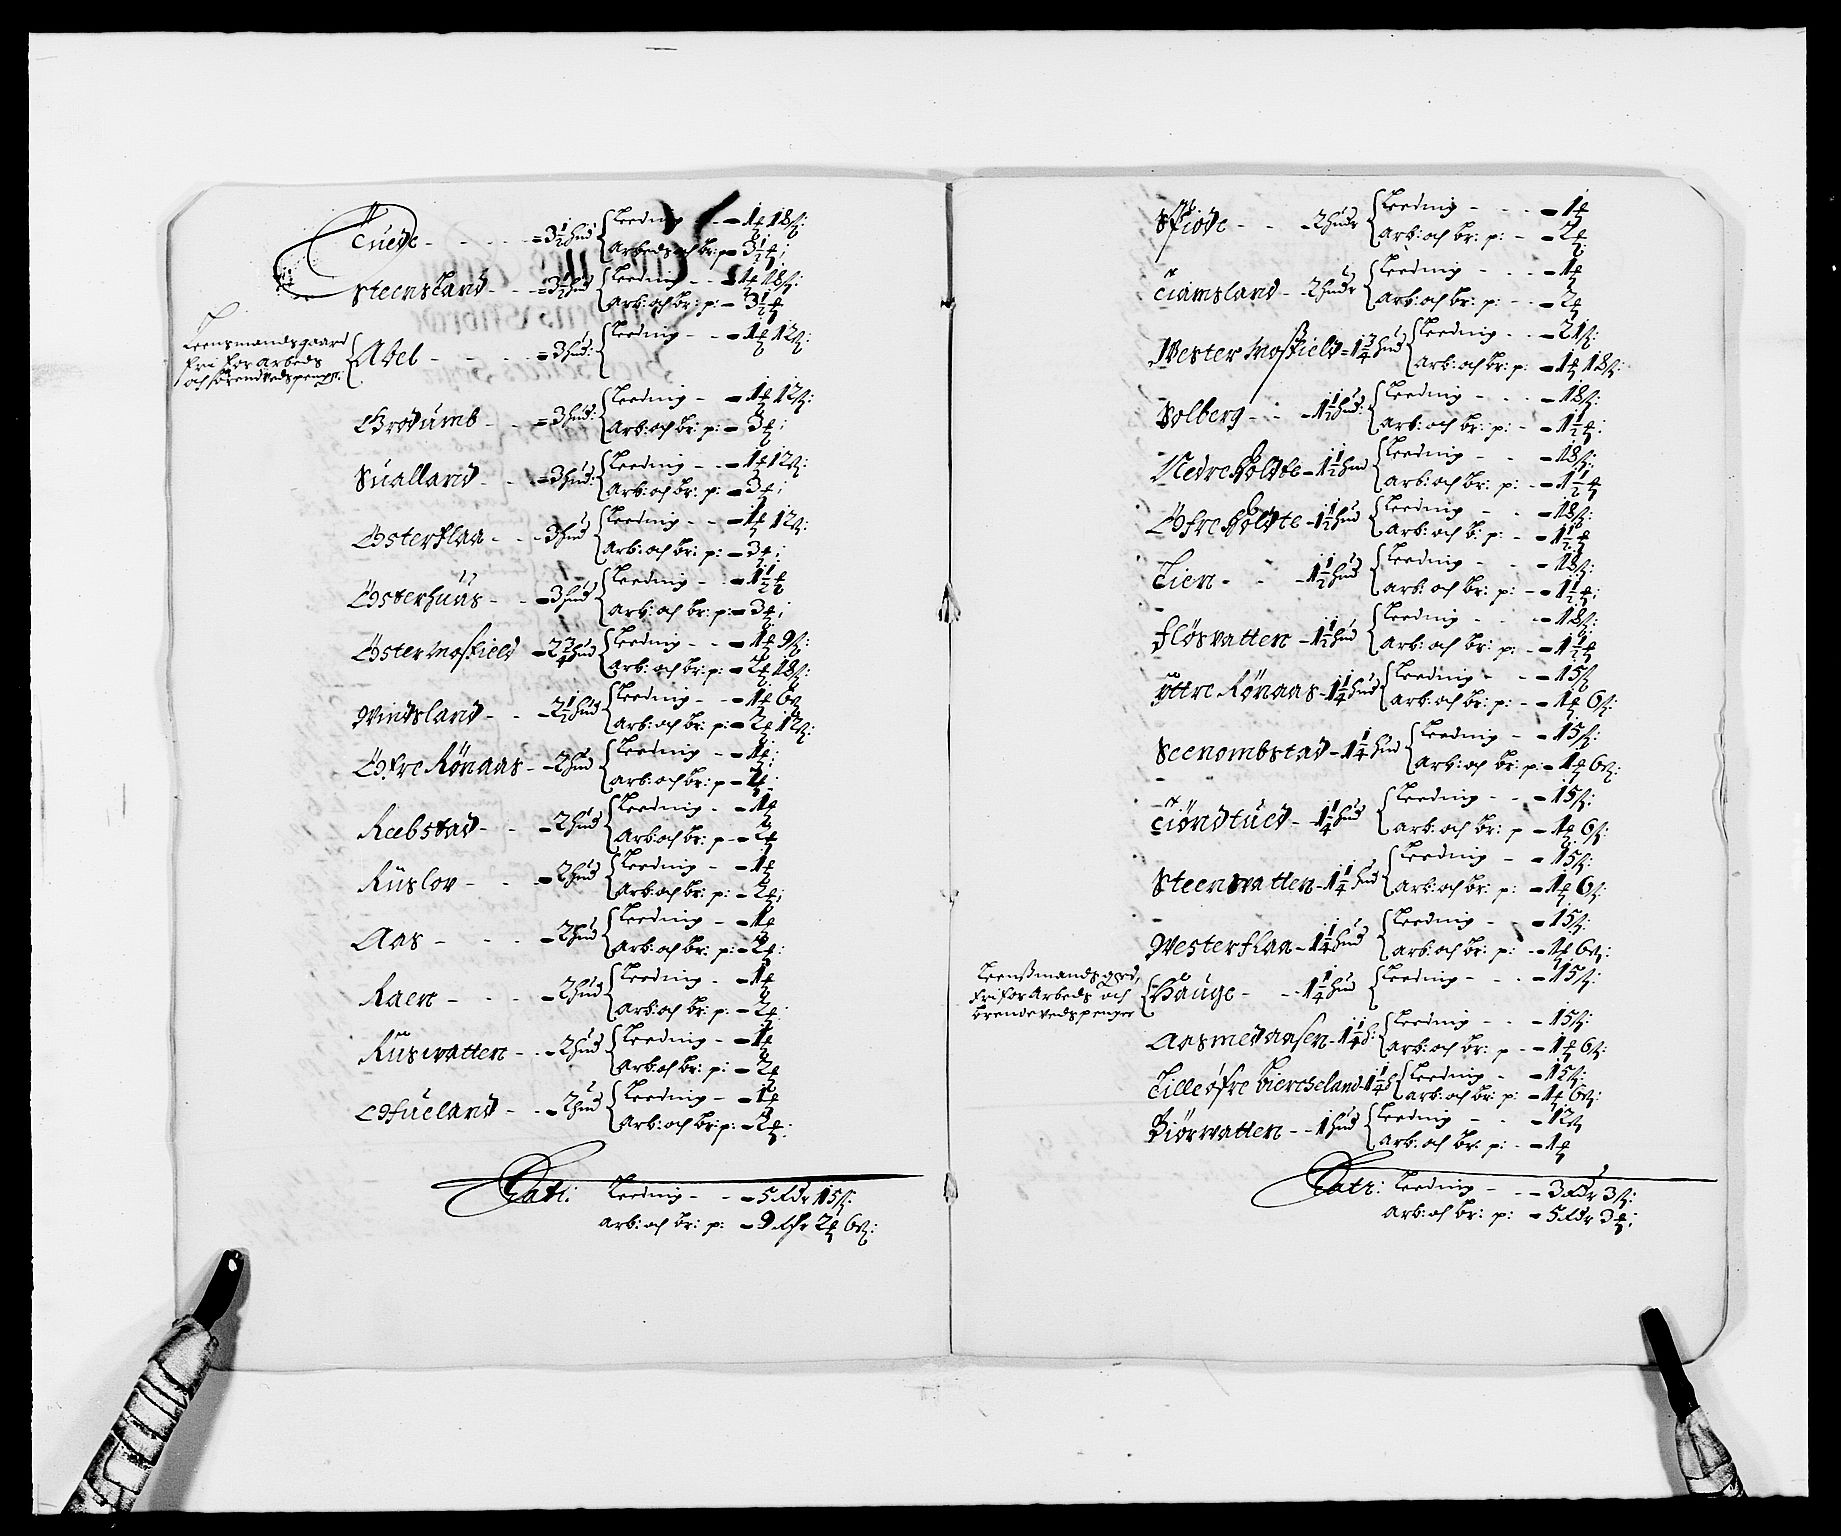 Tuede - - - - 3½ hud Leeding - - 1 ₰ 18 ß:
Arbeds och br: p 3½ ₰:
Steensland - - 3½ hud Leeding - - 1 ₰ 18 ß:
Arb: och br: p: - 3½ ₰
Leensmandsgaard
fri for Arbeds
och brendvedspenger:
Abel - - - - 3 hud: Leeding - - 1 ₰ 12 ß:
Grødumb - - 3 hud: Leeding - - 1 ₰ 12 ß:
Arb: och br: p: - 3 ₰:
Sualland - - 3 hud: Leeding - - 1 ₰ 12 ß:
Arb: och br: p: - 3 ₰:
Østerflaa - - 3 hud Leeding - - 1 ₰ 12 ß:
Arb: och br: p: - 3 ₰:
Østerhuus - - 3 hud Leeding - - 1½ ₰
Arb: och br: p: - 3 ₰:
Øster Mosfield - 2¾ hud Leeding - - 1 ₰ 9 ß:
Arb: och br: p: - 2 ₰ 18 ß:
Windsland - - 2½ hud Leeding - - 1 ₰ 6 ß
Arb: och br: p: - 2 ₰ 12 ß:
Øfre Rønaas - 2 hud Leeding - 1 ₰:
Arb: och br: p - 2 ₰:
Reebstad - - 2 hud Leeding - 1 ₰
Arb: och br: p - 2 ₰
Ruslov - - - 2 hud Leeding - 1 ₰
Arb: och br: p: - 2 ₰:
Aas - - - - 2 hud Leeding - 1 ₰
Arb: och br: p: - 2 ₰:
Raen - - - - 2 hud Leeding - 1 ₰
Arb: och br: p: - 2 ₰:
Rusvatten - - 2 hud Leeding - 1 ₰
Arb: och br: p: - 2 ₰
Ofueland - - 2 hud Leeding - 1 ₰
Arb: och br: p: - 2 ₰:
Leeding - - 5 Rdr 15 ß:
Arb: och br: p: - 9 Rdr 2 ₰ 6 ß:
2 hudr Leeding - - - 1 ₰
Arb: och br: p: - 2 ₰
Tiamsland - 2 hudr Leeding - - - 1 ₰
Arb: och br: p: - - 2 ₰
Wester Mosfield - 1¾ hud Leeding - - - 21 ß:
Arb: och br: p: - 1 ₰ 18 ß:
Solberg - - 1½ hud: Leeding - - - 18 ß:
Arb: och br: p: - 1½ ₰:
Nedre Holdte - 1½ hud Leeding - - - 18 ß:
Arb: och br: p: - 1½ ₰
Øfre Holdte - 1½ hud Leeding - - - 18 ß:
Arb: och b: p: - 1½ ₰
Lien - - - 1½ hud Leeding - - - 18 ß:
Arb: och br: p: - 1½ ₰:
Fløsvatten - 1½ hud Leeding - - - 18 ß:
Arb: och br: p: - 1½ ₰
Yttre Rønaas - 1¼ hud Leeding - - 15 ß
Arb: och br: p: - 1 ₰ 6 ß:
Seenombstad - 1¼ hud Leeding - - 15 ß:
Arb: och br: p: - 1 ₰ 6 ß:
Tiøndtued - 1¼ hud Leeding - - - 15 ß:
Arb: och br: p - 1 ₰ 6 ß:
Steenvatten - 1¼ hud Leeding - - 15 ß:
Arb: och br: p: - 1 ₰ 6 ß:
Westerflaa - 1¼ hud Leeding - - 15 ß:
Arb: och br: p: - 1 ₰ 6 ß:
Leenßmandsgrd,
fri for Arbeds och
brendevedspenger
Hauge - - 1¼ hud Leeding - - - 15 ß:
Aasmedaasen - 1¼ h: Leeding - - 15 ß:
Arb: och br: p - 1 ₰ 6 ß:
Lille øfre Biercheland 1¼ h Leeding - - 15 ß:
Arb: och br: p: - 1 ₰ 6 ß:
Biørvatten - - 1 hud Leeding - - 12 ß
Arb: och br: p: - 1 ₰
Leeding - - 3 Rdr 3 ß:
Arb: och br: p: - 5 Rdr 3 ₰: